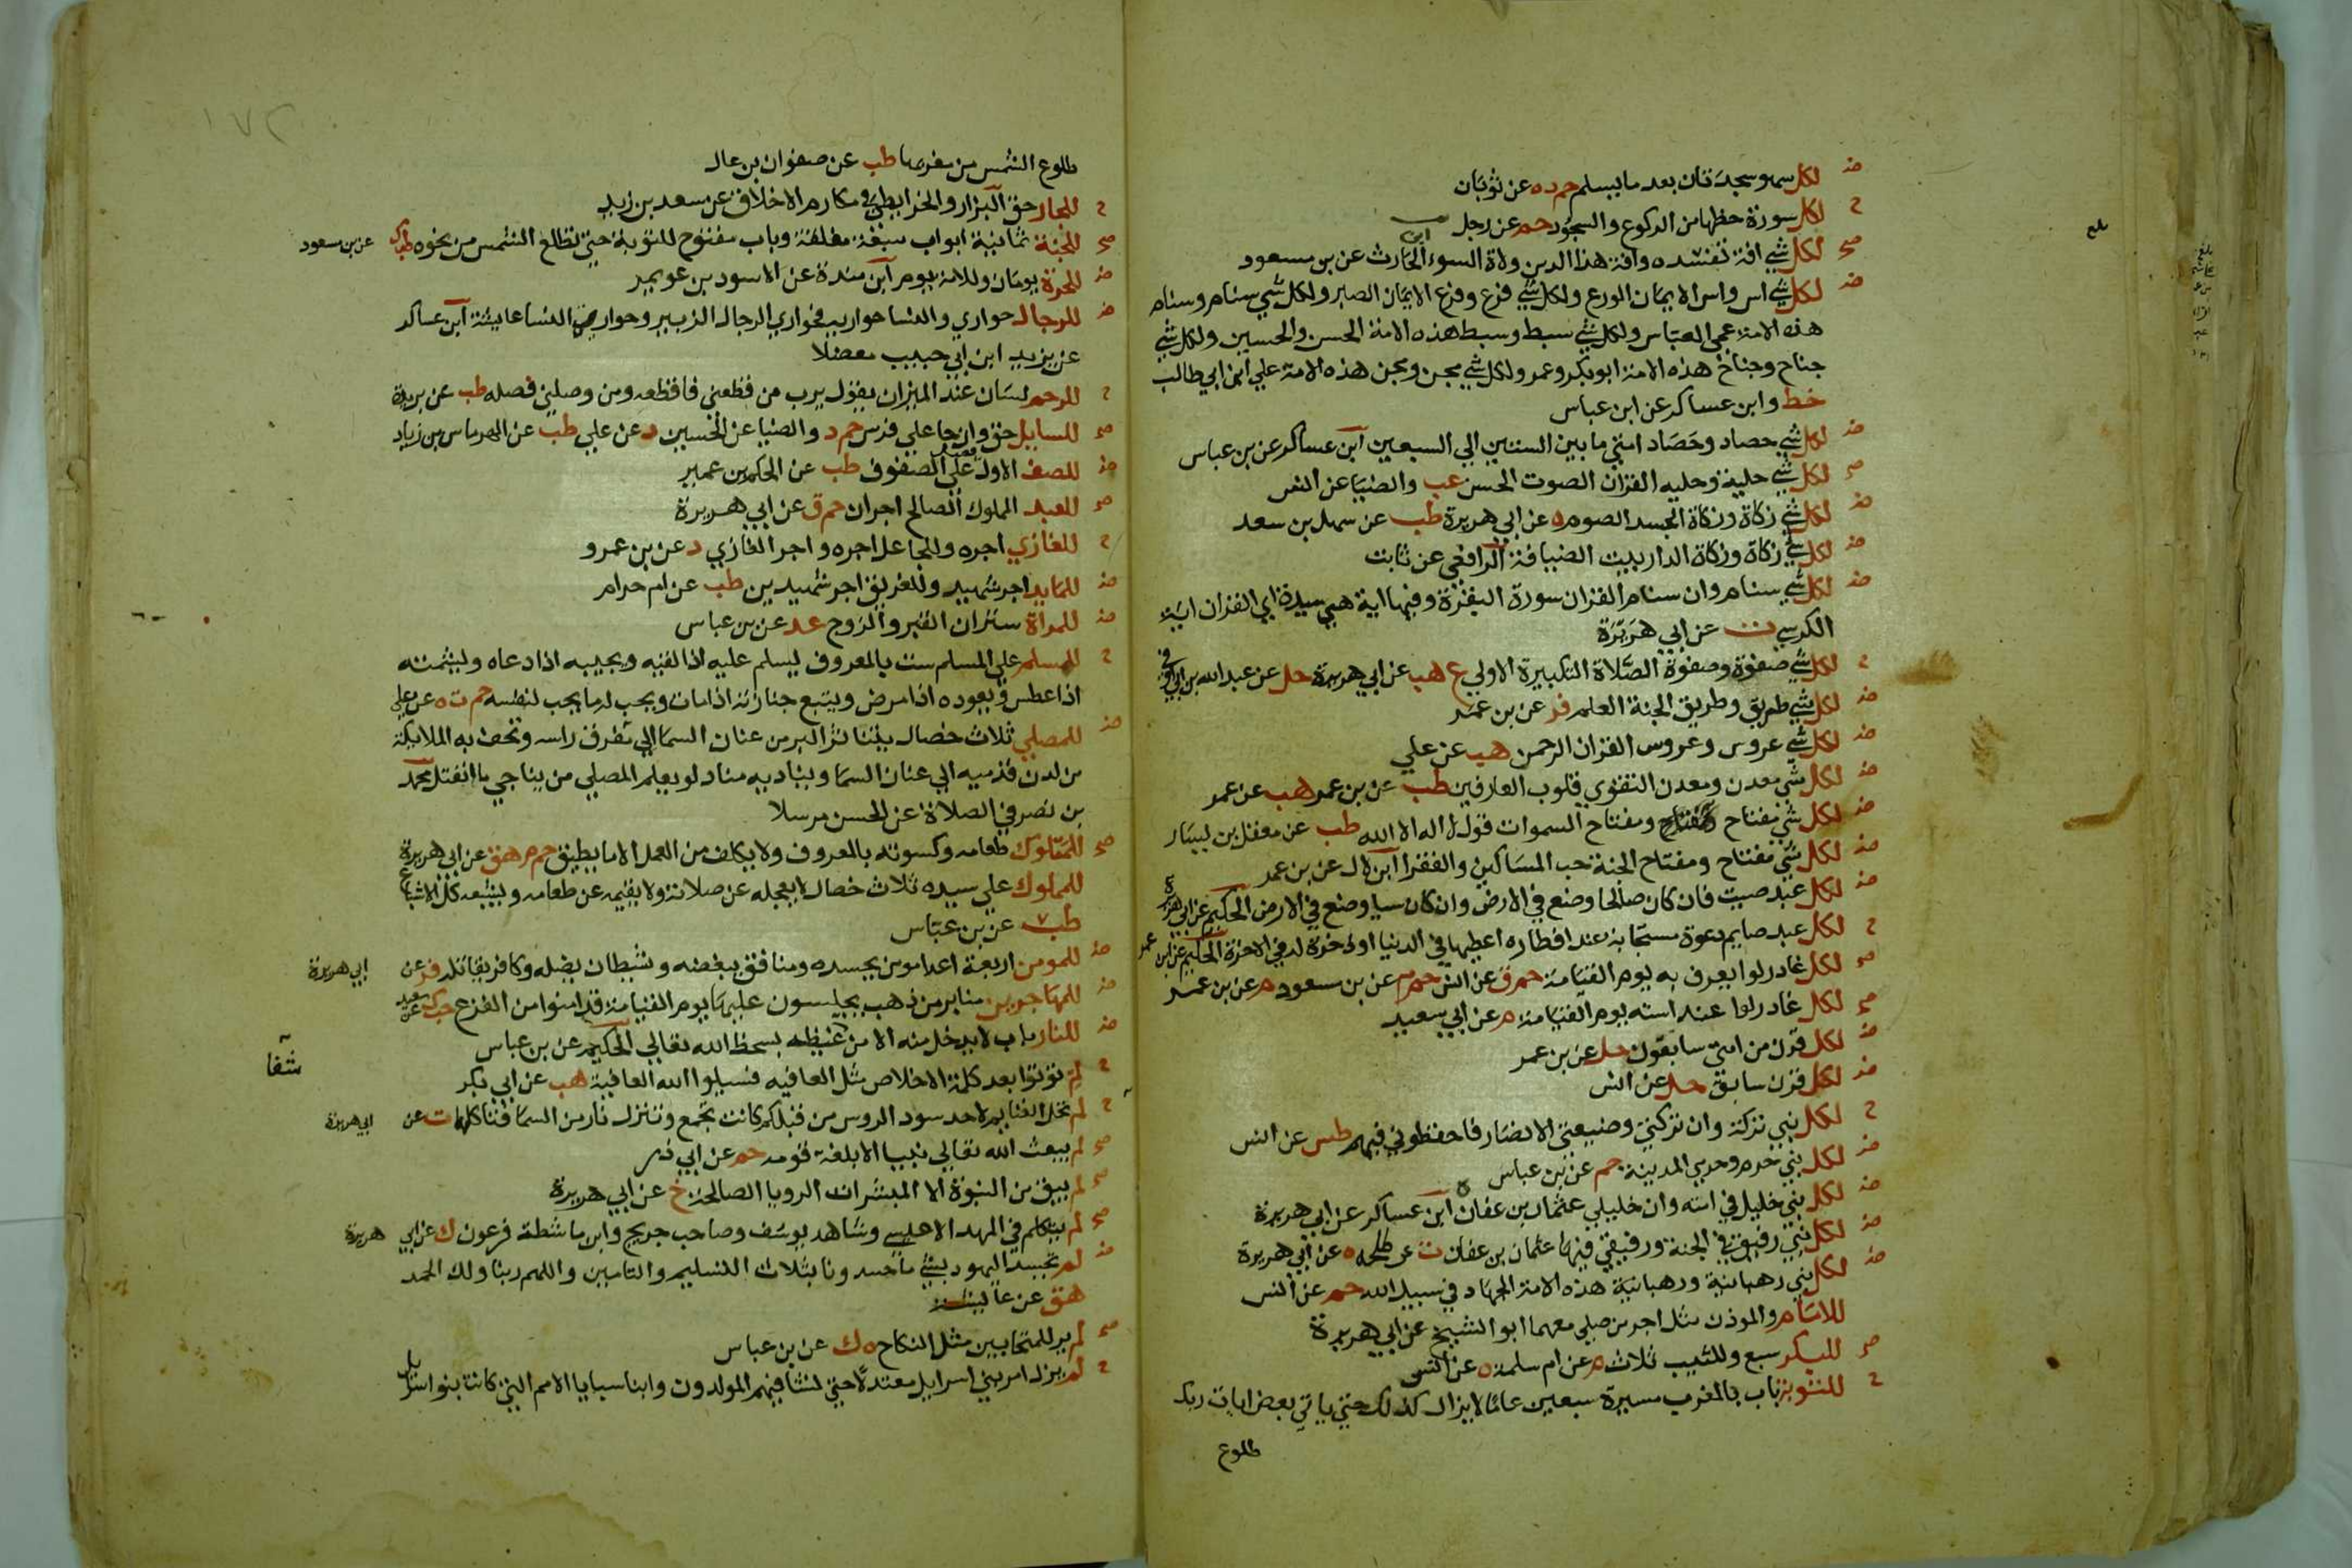 لكل سهو سجدتان بعد ما يسلم حم د ه عن ثوبان
لكل سورة حظها من الركوع والسجود حم عن رجل
لكل شي افة تفسده وافة هذا الدين ولاة السوء الحارث عن بن مسعود
لكل شي اس واس الايمان الورع ولكل شي فرع وفرع الايمان الصبر ولكل شي سنام وسنام
هذه الامة عمي العباس ولكل شي سبط وسبط هذه الامة الحسن والحسين ولكل شي
جناح وجناح هذه الامة ابو بكر وعمر ولكل شي مجن ومجن هذه الامة علي ابن ابي طالب
خط وابن عساكر عن ابن عباس
لكل شي حصاد وحصاد امتي ما بين الستين الي السبعين ابن عساكر عن بن عباس
لكل شي حلية وحليه القران الصوت الحسن عب والضيا عن انس
لكل شي زكاة وزكاة الجسد الصوم ه عن ابي هريرة طب عن سهل بن سعد
لكل شي زكاة وزكاة الدار بيت الضيافة الرافعي عن ثابت
لكل شي سنام وان سنام القران سورة البقرة وفيها اية هي سيدة اي القران اية
الكرسي ت عن ابي هريرة
لكل شي صفوة وصفوة الصلاة التكبيرة الاولي ع هب عن ابي هريرة حل عن عبد الله بن ابي اوفي
لكل شي طريق وطريق الجنة العلم فر عن بن عمر
لكل شي عروس وعروس القران الرحمن هب عن علي
لكل شي معدن ومعدن التقوي قلوب العارفين طب عن بن عمر هب عن عمر
لكل شي مفتاح ومفتاح السموات قول لا اله الا الله طب عن معقل بن يسار
لكل شي مفتاح ومفتاح الجنة حب المساكين والفقرا ابن لال عن بن عمر
لكل عبد صيت فان كان صالحا وضع في الارض وان كان سيا وضع في الارض الحكيم عن ابي هريرة
لكل عبد صايم دعوة مستجابة عند افطاره اعطيها في الدنيا او ذخرة له في الاخرة الحكيم عن ابن عمر
لكل غادر لوا يعرف به يوم القيامة حم ق عن انس حم م عن بن مسعود م عن بن عمر
لكل غادر لوا عند استه يوم القيامة م عن ابي سعيد
لكل قرن من امتي سابقون حل عن بن عمر
لكل قرن سابق حل عن انس
لكل نبي تركة وان تركتي وضيعتي الانصار فاحفظوني فيهم طس عن انس
لكل نبي حرم وحرمي المدينة حم عن بن عباس
لكل نبي خليل في امته وان خليلي عثمان بن عفان ابن عساكر عن ابي هريرة
لكل نبي رفيق في الجنة ورفيقي فيها عثمان بن عفان ت عن طلحة ه عن ابي هريرة
لكل نبي رهبانية ورهبانية هذه الامة الجهاد في سبيل الله حم عن انس
للامام والموذن مثل اجر من صلي معهما ابو الشيخ عن ابي هريرة
للبكر سبع وللثيب ثلاث م عن ام سلمة ه عن انس
للتوبة باب بالمغرب مسيرة سبعين عاما لا يزال كذلك حتي ياتي بعض ايات ربك
طلوع
١٧٢
طلوع الشمس من مغربها طب عن صفوان بن عال
للجار حق البزار والخرايطي في مكارم الاخلاق عن سعد بن زيد
للجنة ثمانية ابواب سبعة مغلقة وباب مفتوح للتوبة حتي تطلع الشمس من نحوه طب ك عن بن مسعود
للحرة يومان وللامة يوم ابن مندة عن الاسود بن عويمر
للرجال حواري وللنسا حوارية فحواري الرجال الزبير وحوارية النسا عايشة ابن عساكر
عن يزيد ابن ابي حبيب معضلا
للرحم لسان عند الميزان يقول يرب من قطعني فاقطعه ومن وصلني فصله طب عن بريدة
للسايل حق وان جا علي فرس حم د والضيا عن الحسين د عن علي طب عن الهرماس بن زياد
للصف الاول فضل علي الصفوف طب عن الحكم بن عمير
للعبد المملوك الصالح اجران حم ق عن ابي هريرة
للغازي اجره وللجاعل اجره واجر الغازي د عن بن عمرو
للمايد اجر شهيد وللغريق اجر شهيدين طب عن ام حرام
للمراة ستران القبر والزوج عد عن بن عباس
للمسلم علي المسلم ست بالمعروف يسلم عليه اذا لقيه ويجيبه اذا دعاه ويشمته
اذا عطس ويعوده اذا مرض ويتبع جنازته اذا مات ويحب له ما يحب لنفسه حم ت ه عن علي
للمصلي ثلاث خصال يتناثر البر من عنان السما الي مفرق راسه وتحف به الملايكة
من لدن قدميه الي عنان السما ويناديه مناد لو يعلم المصلي من يناجي ما انفتل محمد
بن نصر في الصلاة عن الحسن مرسلا
للمملوك طعامه وكسوته بالمعروف ولا يكلف من العمل الا ما يطيق حم م هق عن ابي هريرة
للمملوك علي سيده ثلاث خصال لا يعجله عن صلاته ولا يقيمه عن طعامه ويشبعه كل الاشباع
طب عن بن عباس
للمومن اربعة اعدا مومن يحسده ومنافق يبغضه وشيطان يضله وكافر يقاتله فر عن ابي هريرة
للمهاجرين منابر من ذهب يجلسون عليها يوم القيامة قد امنوا من الفزع حب ك عن سعيد
للنار باب لا يدخل منه الا من شفا غيظه بسخط الله تعالي الحكيم عن بن عباس
لم توتوا بعد كلمة الاخلاص مثل العافيه فسيلوا الله العافية هب عن ابي بكر
لم تحل الغنايم لاحد سود الروس من قبلكم كانت تجمع وتنزل نار من السما فتاكلها ت عن ابي هريرة
لم يبعث الله تعالي نبيا الا بلغة قومه حم عن ابي ذر
لم يبق من النبوة الا المبشرات الرويا الصالحة خ عن ابي هريرة
لم يتكلم في المهد الا عيسي وشاهد يوسف وصاحب جريج وابن ماشطة فرعون ك عن ابي هريرة
لم تحسد اليهود بشي ما حسدونا بثلاث التسليم والتامين واللهم ربنا ولك الحمد
هق عن عايشة
لم ير للمتحابين مثل النكاح ه ك عن بن عباس
لم يزل امر بني اسرايل معتدلا حتي نشا فيهم المولدون وابنا سبايا الامم التي كانت بنو اسرايل